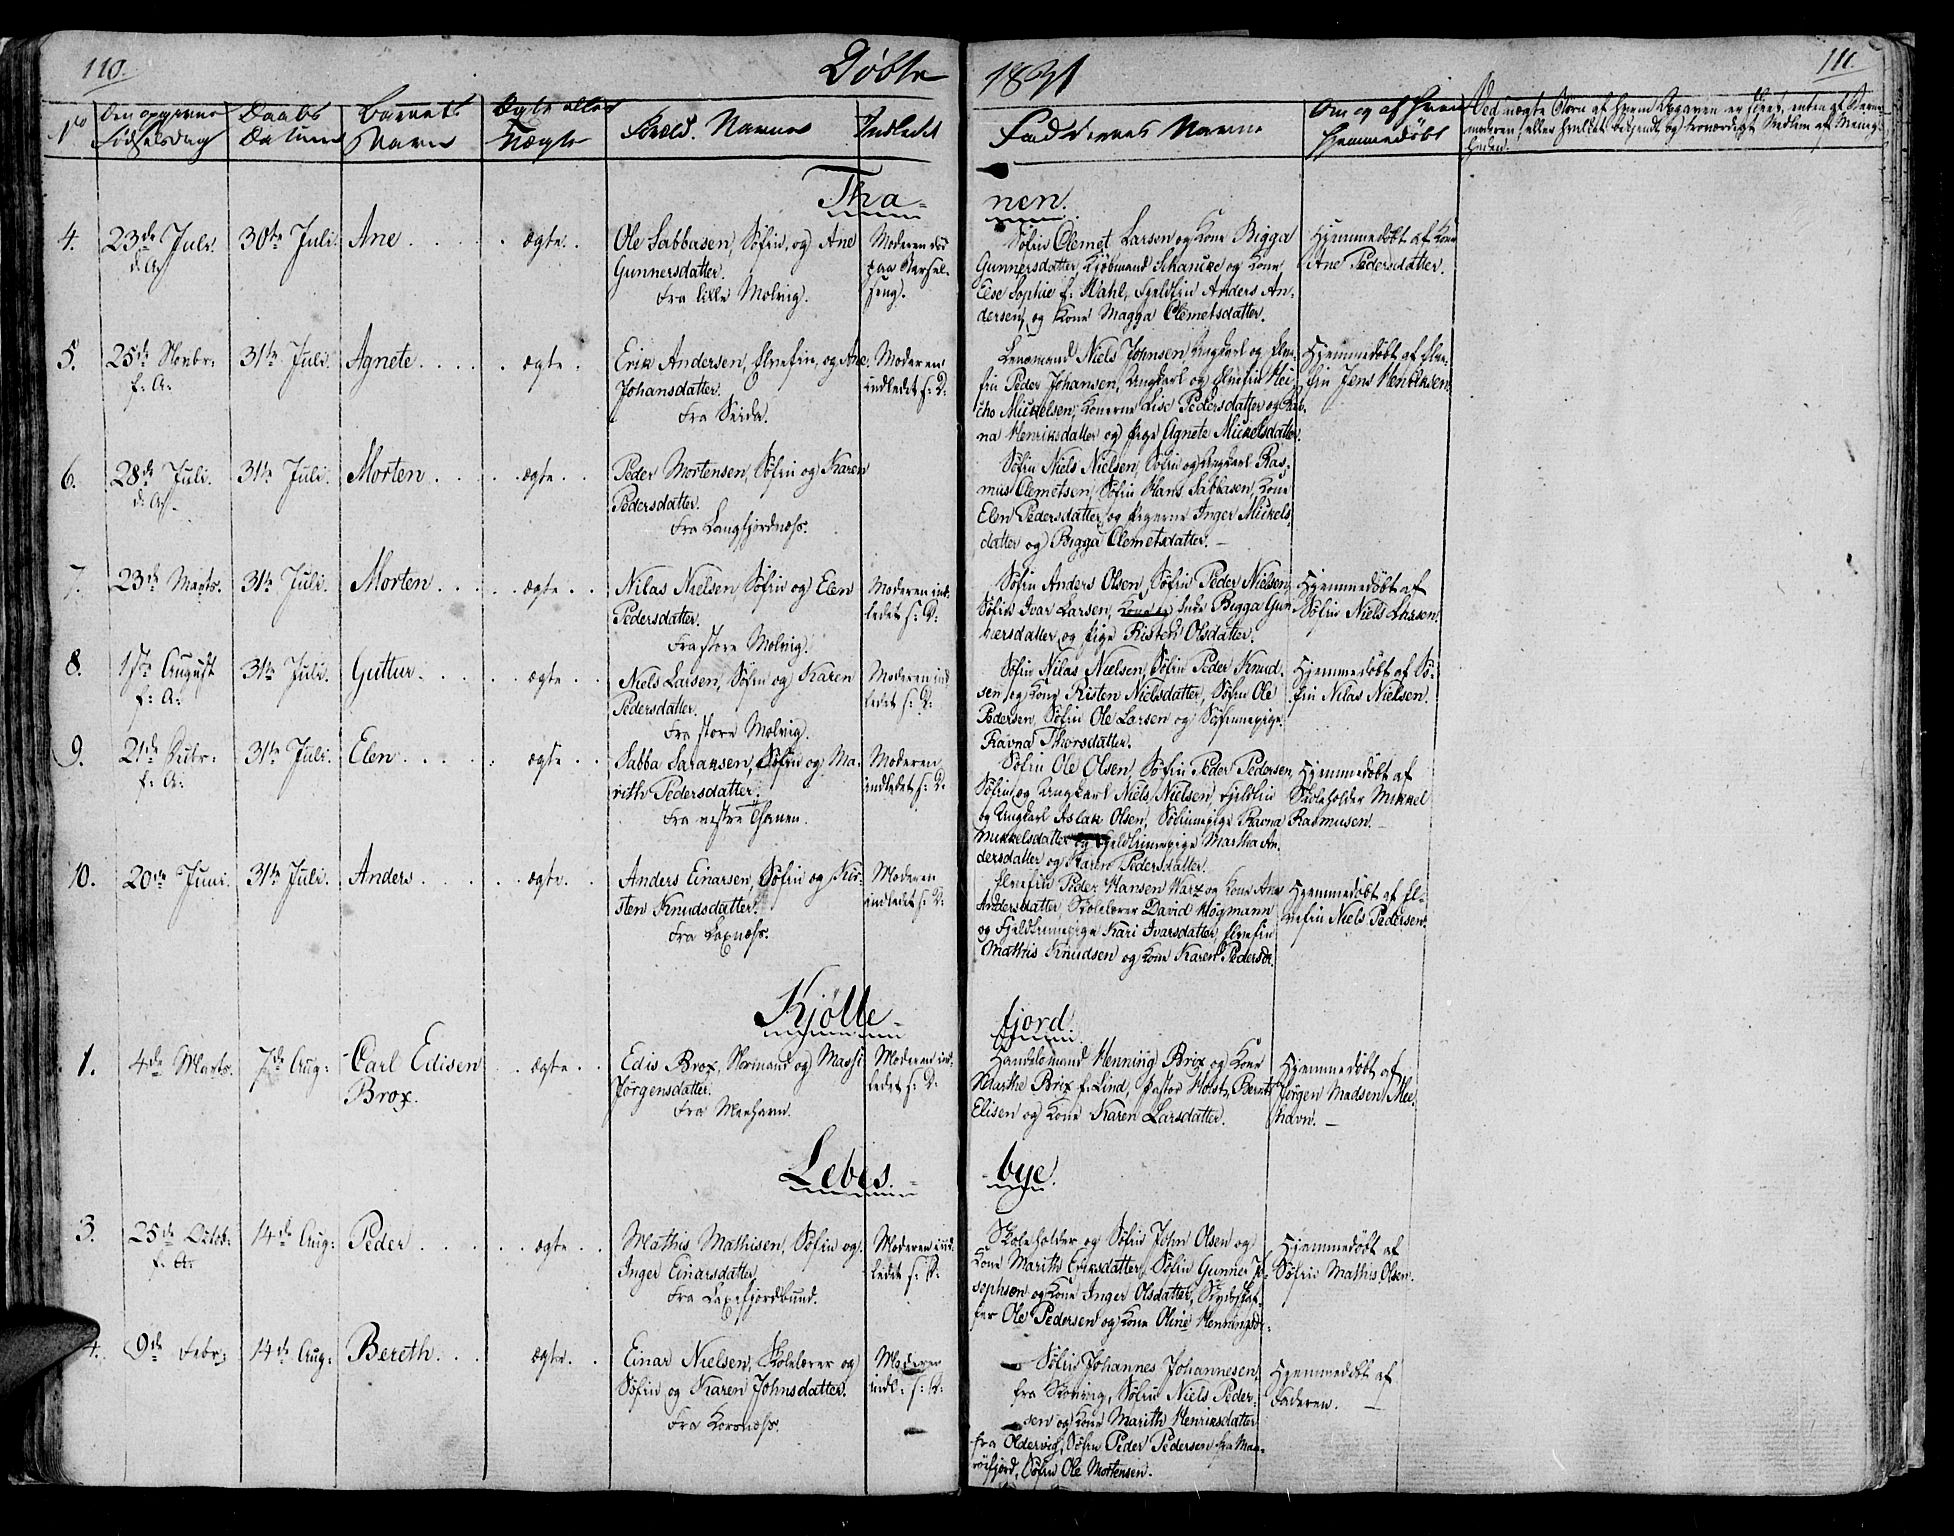 110.
Døbte
1831
111.
No
Den opgivne Fødselsdag
Daabs Datum
Barnets Navn
Ægte eller Uægte
Foreld. Navne
Indledt
Faddernes Navne
Om og af hvem Hjemmedøbt
Tha-
nen.
4.
23de Juli
d: A:
30te Juli
Ane
ægte
Ole Sabbasen, Søfin, og Ane
Gunnersdatter.
Fra lille Molvig.
Moderen død
paa Barsel-
seng.
Søfin Clemet Larsen og Kone Bigga
Gunnersdatter, Kjøbmand Schancke og Kone
Else Sophie f: Wahl, Fjeldfin Anders An-
dersen, og Kone Magga Clemetsdatter.
Hjemmedøbt af Kone
Ane Pedersdatter.
5.
25de Novbr:
f: A:
31te Juli.
Agnete
ægte
Erik Andersen, Elvefin, og Ane
Johansdatter.
Fra Seida.
Moderen
indledt s: D:
Lensmand Niels Johnsen, Ungkarl og Elve-
fin Peder Johansen, Ungkarl og Elvefin Hei-
cho Mickelsen, Konerne Lise Pedersdatter og
na Henriksdatter og Pige Agnete Mickelsdatter.
Hjemmedøbt af Elve-
fin Jens Henriksen.
6.
28de Juli.
d: A:
31te Juli.
Morten
ægte
Peder Mortensen, Søfin og Karen
Pedersdatter.
Fra Langfjordnæss.
Søfin Niels Nielsen, Søfin og Ungkarl Ras-
mus Clemetsen, Søfin Hans Sabbasen, Kone
Elen Pedersdatter, og Pigerne Inger Mickels-
datter og Bigga Clemetsdatter. —
7.
23de Marts.
31te Juli.
Morten
ægte
Nilas Nielsen Søfin og Elen
Pedersdatter.
Fra store Molvig.
Moderen ind-
ledet s: D:
Søfin Anders Olsen, Søfin Peder Nielsen,
Søfin Ivar Larsen, Enke Bigga Gun-
nersdatter og Pige Risten Olsdatter.
Hjemmedøbt af
Søfin Niels Larsen.
8.
1ste August
f: A:
31te Juli.
Guttur
ægte
Niels Larsen, Søfin og Karen
Pedersdatter.
Fra store Molvig.
Moderen ind
ledet s: D:
Søfin Nilas Nielsen, Søfin Peder Knud-
sen og Kone Risten Nielsdatter, Søfin Ole
Pedersen, Søfin Ole Larsen og Søfinnepige
Ravna Thorsdatter.
Hjemmedøbt af Sø-
fin Nilas Nielsen.
9.
21de
f: A:
31te Juli.
Elen
ægte
Sabba Saraksen, Søfin og Ma-
rith Pedersdatter.
Fra vestre Thanen.
Moderen
indledet s: D:
Søfin Ole Olsen, Søfin Peder Pedersen,
Søfin og Ungkarl Niels Nielsen, Fjeldfin
og Ungkarl Aslak Olsen, Søfinnepige Ravna
Mikkelsdatter og Fjeldfinnepige Martha An-
dersdatter og Karen Pedersdatter.
Hjemmedøbt af
Skoleholder Mikkel
Rasmusen. —
10.
20de Juni.
31te Juli.
Anders
ægte
Anders Einarsen, Søfin og Kir-
sten Knudsdatter.
Fra Laxnæss.
Moderen
indledet s: D:
Elvefin Peder Hansen Warx og Kone Ane
Andersdatter, Skolelærer David Högmann
og Fjeldfinnepige Kari Ivarsdatter, Elvefin
Mathis Knudsen og Kone Karen Pedersdr.
Hjemmedøbt af El-
vefin Niels Pedersen.
Kjølle-
fjord.
1.
4de Marts.
7de Aug:
Carl Edisen
Brox.
ægte
Edis Brox, Normand og Massi
Jörgensdatter.
Fra Meehavn.
Moderen ind-
ledet s: D:
Handelsmand Henning Brix og Kone
Marthe Brix f: Lind, Pastor Holst, Bernt
Elisen og Kone Karen Larsdatter.
Hjemmedøbt af
Jørgen Madsen Mee-
havn. —
Lebes-
bye.
3.
25de Octob:
f: A:
14de Aug:
Peder
ægte
Mathis Mathisen, Søfin og
Inger Einarsdatter
Fra Laxefjordbund.
Moderen ind-
ledet s: D:
Skoleholder og Søfin John Olsen og
Kone Marith Eriksdatter, Søfin Gunner Jo-
sephsen og Kone Inger Olsdatter,
Ole Pedersen og Kone Oline Henningsdr.
Hjemmedøbt af
Søfin Mathis Olsen.
4.
9de Febr:
14de Aug:
Bereth
ægte
Einar Nielsen, Skolelærer og
Søfin og Karen Johnsdatter.
Fra Kornæss.
Moderen
indl: s: D:
Søfin Johannes Johannesen,
fra Skoning, Søfin Niels Peder-
sen og Kone Marith Henriksdatter
fra Oldervig, Søfin Peder Pedersen fra
Søfin Ole Mortensen.
Hjemmedøbt af
Faderen. —